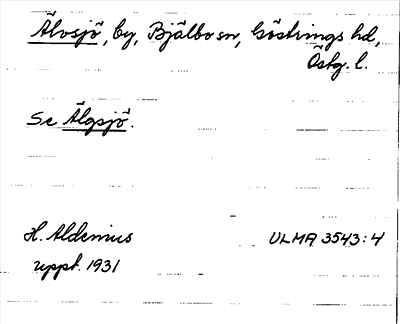 Älvsjö, by, Bjälbo sn, Göstrings hd,
Östg. l.
Se Älgsjö.
H. Aldenius ULMA 3543:4
uppt. 1931